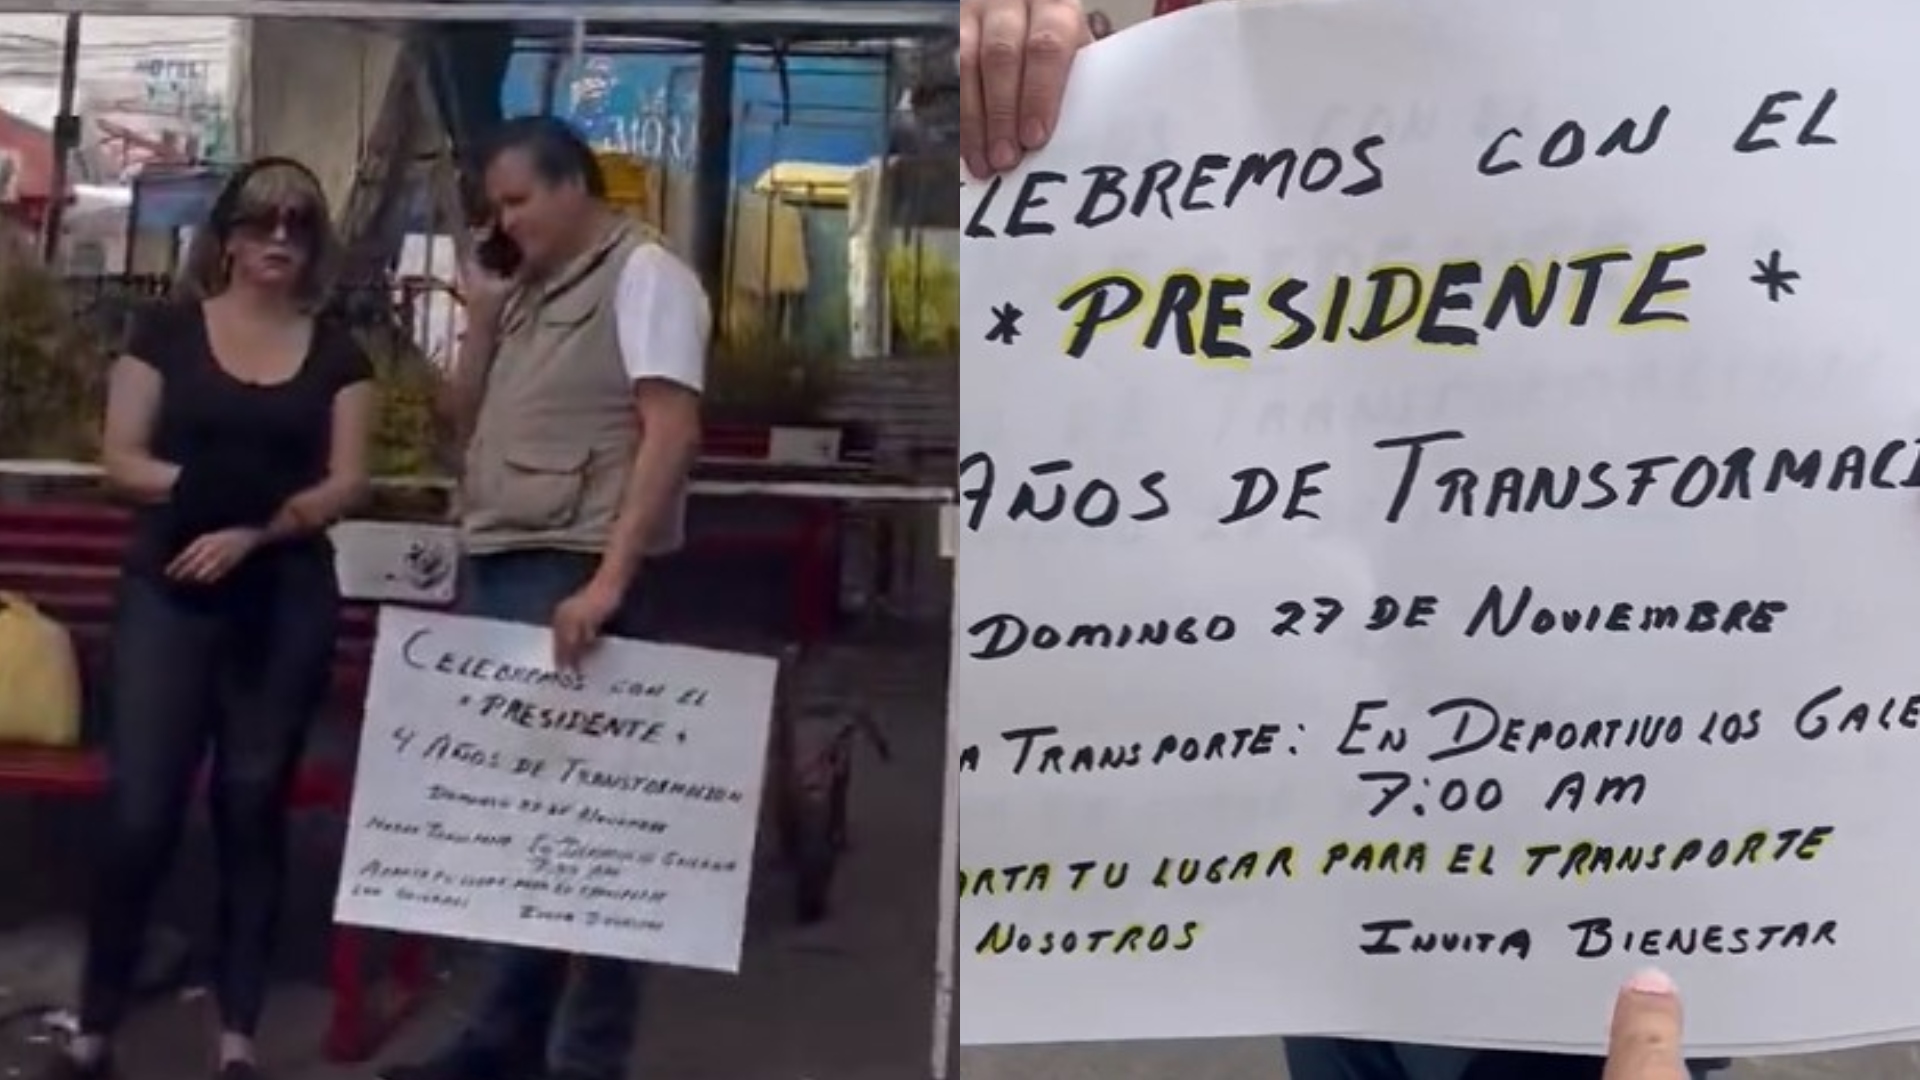 HOTEL
MOR
CELEBREMOS CON EL
* PRESIDENTE *
4 AÑOS DE TRANSFORMACION
DOMINGO 27 DE NOVIEMBRE
TRANSPORTE: EN DEPORTIVO GALEANA
7:00 AM
APARTA TU LUGAR PARA EL TRANSPORTE
CON NOSOTROS INVITA BIENESTAR
LEBREMOS CON EL
* PRESIDENTE *
AÑOS DE TRANSFORMACI
DOMINGO 27 DE NOVIEMBRE
A TRANSPORTE: EN DEPORTIVO LOS GALE
7:00 AM
ARTA TU LUGAR PARA EL TRANSPORTE
NOSOTROS INVITA BIENESTAR